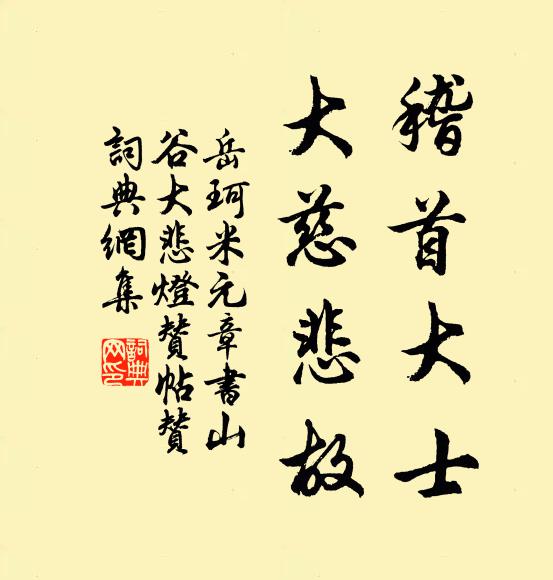 稽首大士
大慈悲故
岳珂米元章書山
谷大悲燈贊帖贊
詞典網集
詞典
网印